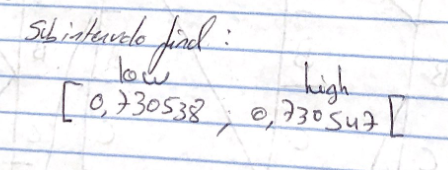 Subintervalo final :
low high
[ 0,730538 ; 0,730547 [